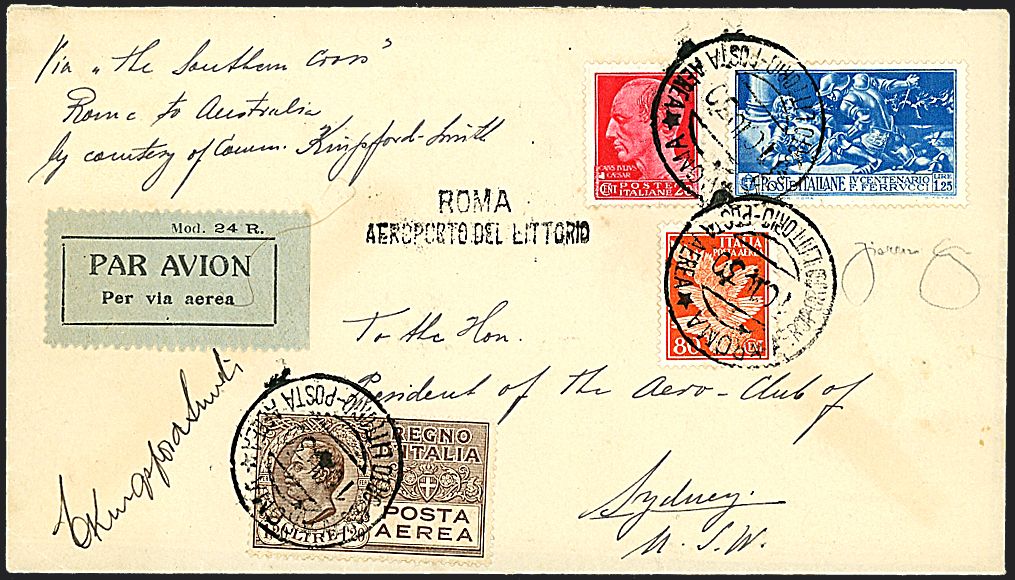 Via "the Southern Cross"
Rome to Australia
by courtesy of Comm. Kingsford-Smith
Mod. 24 R.
PAR AVION
Per via aerea
ROMA
AEROPORTO DEL LITTORIO
CAIVS IVLIVS
CAESAR
CENT
POSTE
ITALIANE
POSTE ITALIANE
IV CENTENARIO
F. FERRUCCI
LIRE
1.25
ROMA
POSTA AEREA
ITALIA
POSTA AEREA
80
CENT
ROMA
POSTA AEREA
To the Hon.
President of the Aero-Club of
Sydney.
N.S.W.
CKingsfordSmith
REGNO
D'ITALIA
POSTA
AEREA
OLTRE 1.20
ROMA
POSTA AEREA